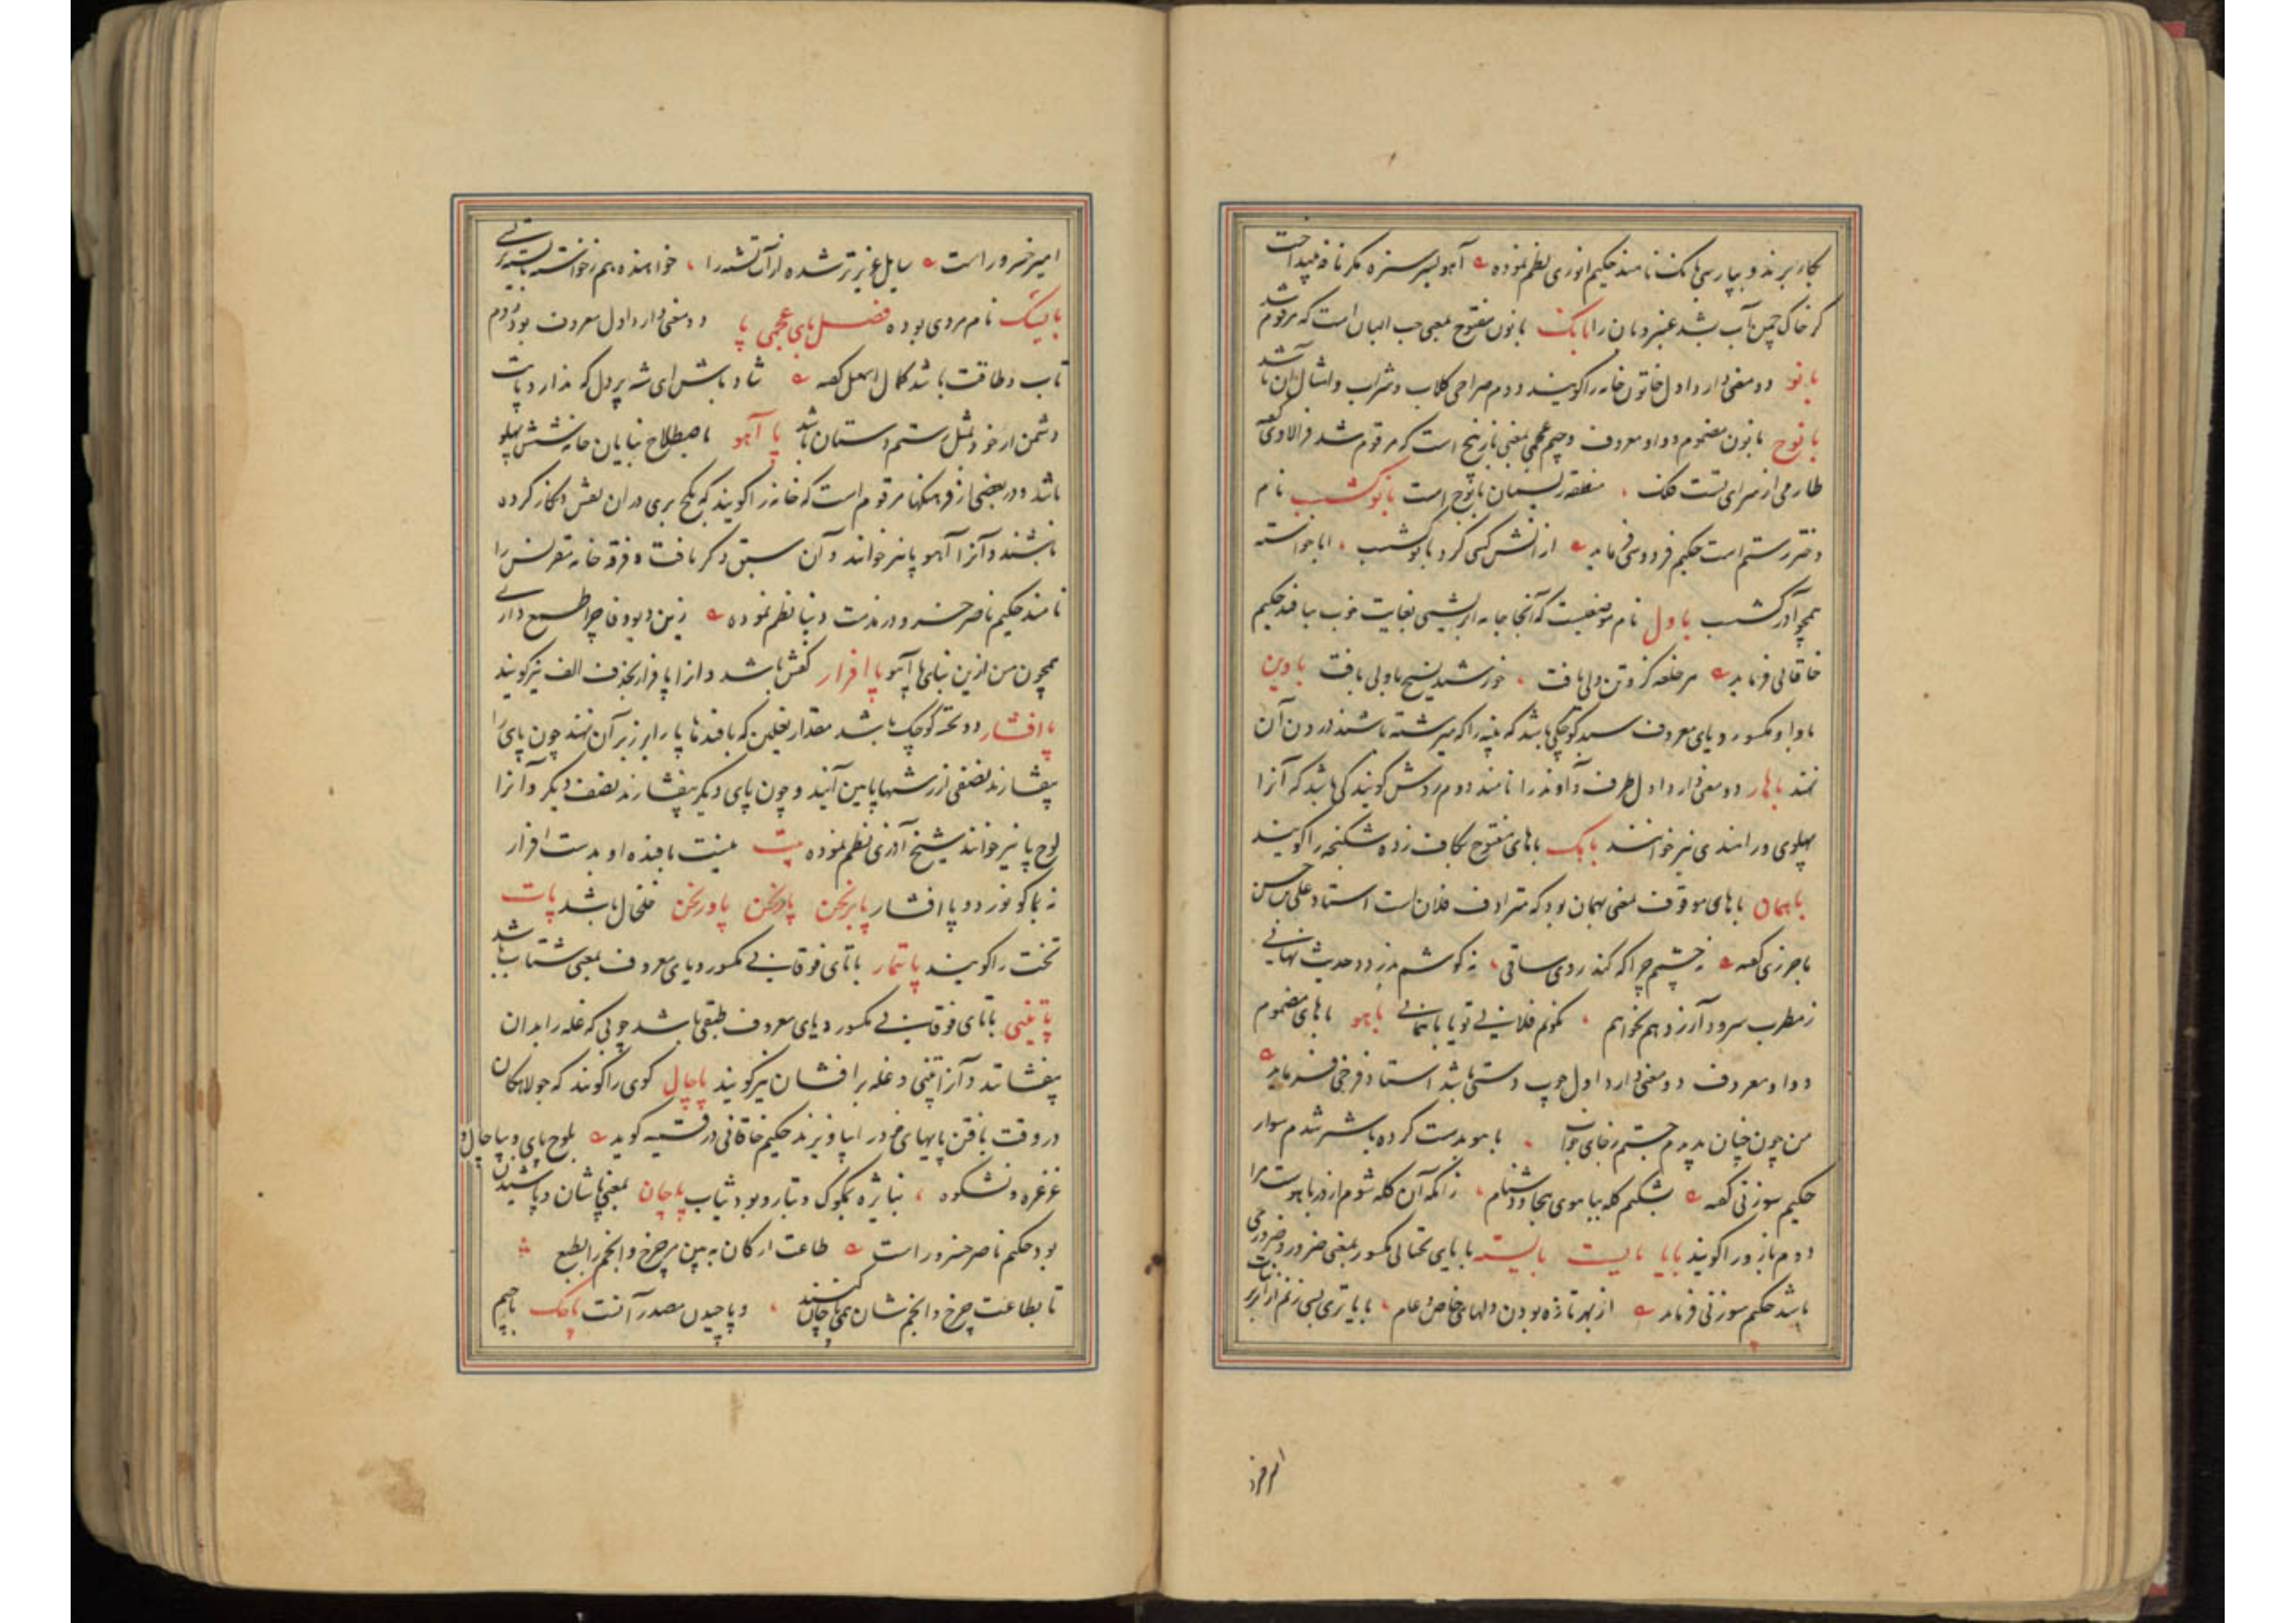 بکار برند و بپارسی بانک نامند حکیم انوری نظم نموده آهو بسر سبزه مگر نافه بینداخت
کز خاک چمن آب بشد عنبر و بان را بانک با نون مفتوح بمعنی حب البان است که مرقوم شد
بانو دو معنی دارد اول خاتون خانه را گویند دوم صراحی گلاب و شراب و امثال آن باشد
بانوج با نون مضموم و واو معروف و جیم عجمی بمعنی بازپیچ است که مرقوم شد فرالاوی گفته
طارمی از سرای تست فلک معلقه ریسمان بانوج است بانوگشسب نام
دختر رستم است حکیم فردوسی فرماید از آتش کسی کرد بانوگشسب ابا خواسته
همچو آذرگشسب باول نام موضعیست که آنجا جامه ابریشمی بغایت خوب بافند حکیم
خاقانی فرماید هر خلعه کز و تن ولی یافت خورشید نسیج باولی بافت باوین
با واو مکسور و یای معروف سبد کوچکی باشد که پنبه را که میرشته باشند در درون آن
نهند باهار دو معنی دارد اول ظرف و آوند را نامند دوم روش گویندگی باشد که آنرا
پهلوی و رامندی نیز خوانند باهک باهای مفتوح بکاف زده شکنجه را گویند
باهمان باهای موقوف بمعنی بهمان بود که مترادف فلان است استاد علی بن حسن
باخرزی گفته نه چشمم چرا که کند روی ساقی نه گوشم بدزدد حدیث نهانی
ز مطرب سرود آرزو هم نخواهم نگویم فلانی تو یا باهمانی باهو باهای مضموم
و واو معروف دو معنی دارد اول چوب دستی باشد استاد فرخی فرماید
من چون چنان بدیدم جستم ز جای خواب باهو بدست کرده باشتر شدم سوار
حکیم سوزنی گفته بشکنم کله بباهوی هجا و دشنام زانکه آن کله شوم از در باهوست مرا
دوم بازو را گویند بایا بایست بایسته با یای تحتانی مکسور بمعنی ضرور و ضروری
باشد حکیم سوزنی فرماید از بهر تازه بودن دلهای خاص و عام بایاتری بسی ز نم ابر بر نبات
امیر خسرو
امیر خسرو راست سایل عزیزتر شده از آب تشنه را خواهنده همز خواسته بایسته تر بسی
بایشک نام مردی بوده فصل بای عجمی پا دو معنی دارد اول معروف بود دوم
تاب و طاقت باشد کمال اسمعیل گفته شاد باش ای شه پر دل که ندارد پایت
دشمن ار خود بمثل رستم دستان باشد پا آهو باصطلاح بنایان خانه شش پهلو
باشد و در بعضی از فرهنگها مرقوم است که خانه را گویند که بگچ بری در آن نقش و نگار کرده
باشند و آنرا آهو پا نیز خوانند و آن سبق ذکر یافت و فرقه خانه مقرنس را
نامند حکیم ناصر خسرو در مذمت دنیا نظم نموده زین دیو وفا چرا طمع داری
همچون من ازین بنای پا آهو پاافزار کفش باشد و آنرا پافزار بحذف الف نیز گویند
پاافشار دو تخته کوچک باشد مقدار نعلین که بافندها پا را بر زبر آن نهند چون پای را
بیفشارند نصفی از رشتها پایین آید و چون پای دیگر بیفشارند نصف دیگر و آنرا
لوح پا نیز خوانند شیخ آذری نظم نموده بیت نیست بافنده او بدست افزار
نه بماکو نورد و پا افشار پابرنجن پارنجن پاورنجن خلخال باشد پات
تخت را گویند پاتمار باتای فوقانی مکسور و یای معروف بمعنی شتاب باشد
پاتینی باتای فوقانی مکسور و یای معروف طبقی باشد چوبی که غله را بدان
بیفشانند و آنرا تنی و غله برافشان نیز گویند پاچال گوی را گویند که جولاهگان
در وقت بافتن پایهای خود را بیاویزند حکیم خاقانی در قسمیه گوید بلوح پای و بپاچال و
غرغره و نشکوه بنایژه بمکوک و بتار و پود ثیاب پاچان بمعنی پاشان و پاشیدن
بود حکیم ناصر خسرو راست طاعت ارکان به بین مر چرخ و انجم را بطبع
تا بطاعت چرخ و انجم شان همی پاچان کنند و پاچیدن مصدر آنست پاچک باجیم